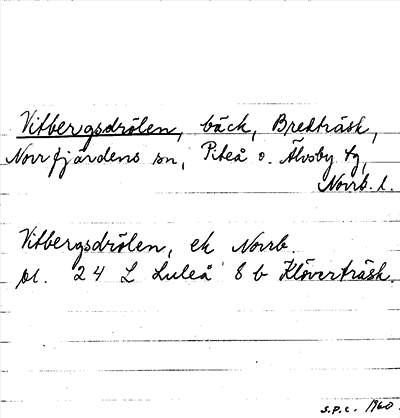 Vitbergsdrölen, bäck, Bredträsk,
Norrfjärdens sn, Piteå o. Älvsby tg,
Norrb. l.
Vitbergsdrölen, ek Norrb.
pl. 24 L Luleå 8 b Klöverträsk.
S.P.C. 1960.